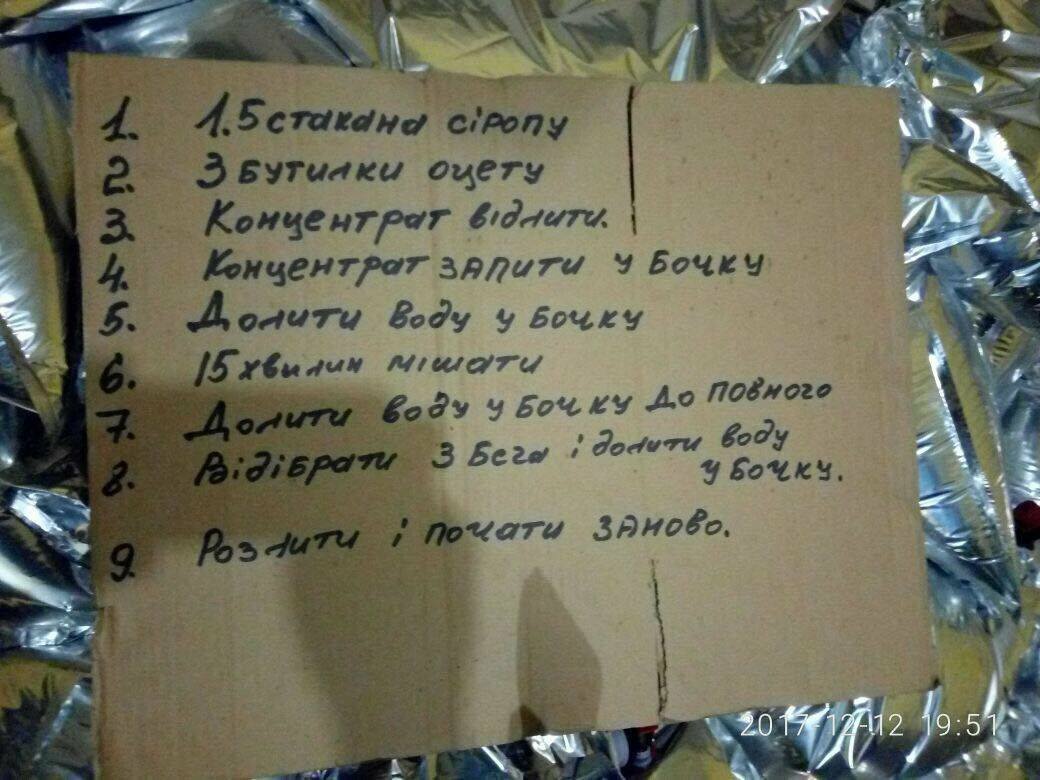 1. 1.5 стакана сіропу
2. 3 бутилки оцету
3. Концентрат відлити.
4. Концентрат запити у бочку
5. Долити воду у бочку
6. 15 хвилин мішати
7. Долити воду у бочку до повного
8. Відібрати з Бега і долити воду
у бочку.
9. Розлити і почати заново.
2017-12-12 19:51